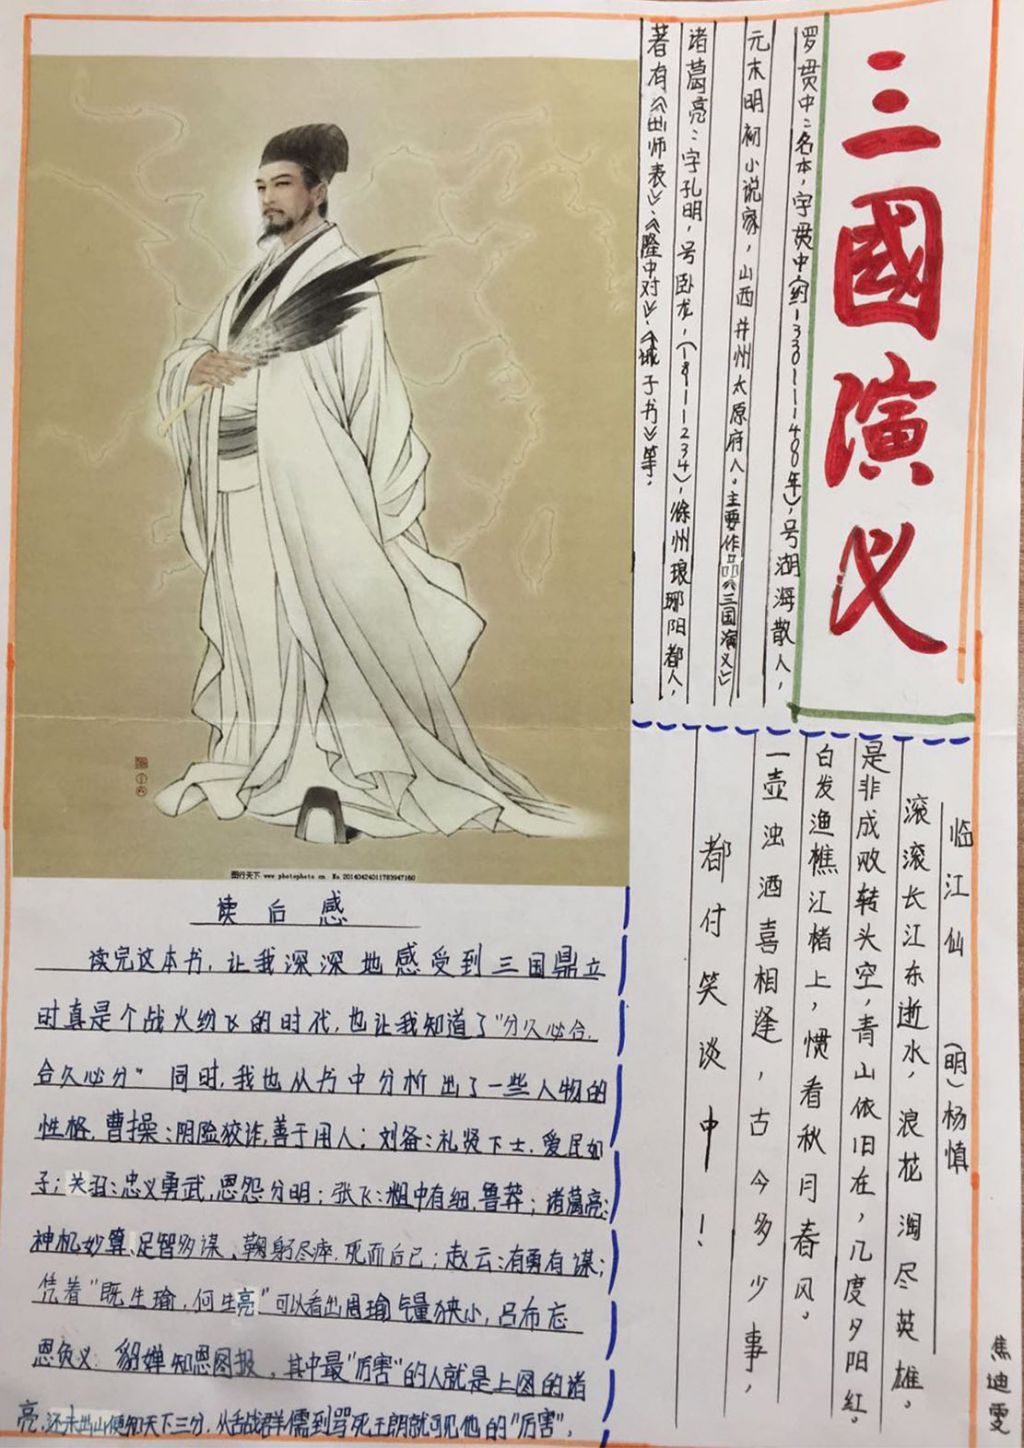 三國演义
罗贯中：名本，字贯中（约1330—1400年），号湖海散人，
元末明初小说家，山西并州太原府人。主要作品《三国演义》
诸葛亮：字孔明，号卧龙，（181—1234），徐州琅琊阳都人，
著有《出师表》、《隆中对》、《诫子书》等，
临江仙 （明）杨慎
滚滚长江东逝水，浪花淘尽英雄。
是非成败转头空，青山依旧在，几度夕阳红。
白发渔樵江楮上，惯看秋月春风。
一壶浊酒喜相逢，古今多少事，
都付笑谈中！
图行天下 www.photophoto.cn No.20140424011783947160
读后感
读完这本书，让我深深地感受到三国鼎立
时真是个战火纷飞的时代，也让我知道了“分久必合，
合久必分”同时，我也从书中分析出了一些人物的
性格，曹操：阴险狡诈，善于用人；刘备：礼贤下士，爱民如
子；关羽：忠义勇武，恩怨分明；张飞：粗中有细，鲁莽；诸葛亮：
神机妙算、足智多谋、鞠躬尽瘁，死而后已；赵云：有勇有谋；
凭着“既生瑜，何生亮”可以看出周瑜气量狭小，吕布忘
恩负义；貂婵知恩图报，其中最“厉害”的人就是上图的诸
亮，还未出山便知天下三分，从舌战群儒到骂死王朗就可见他的“厉害”，
焦迪雯